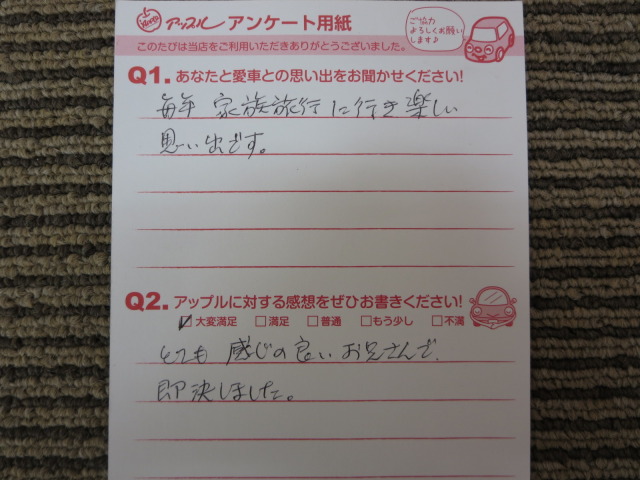 Apple アップル アンケート用紙
ご協力
よろしくお願い
します♪
このたびは当店をご利用いただきありがとうございました。
Q1. あなたと愛車との思い出をお聞かせください!
毎年 家族旅行に行き楽しい
思い出です。
Q2. アップルに対する感想をぜひお書きください!
大変満足 満足 普通 もう少し 不満
とても 感じの良いお兄さんで
即決しました。